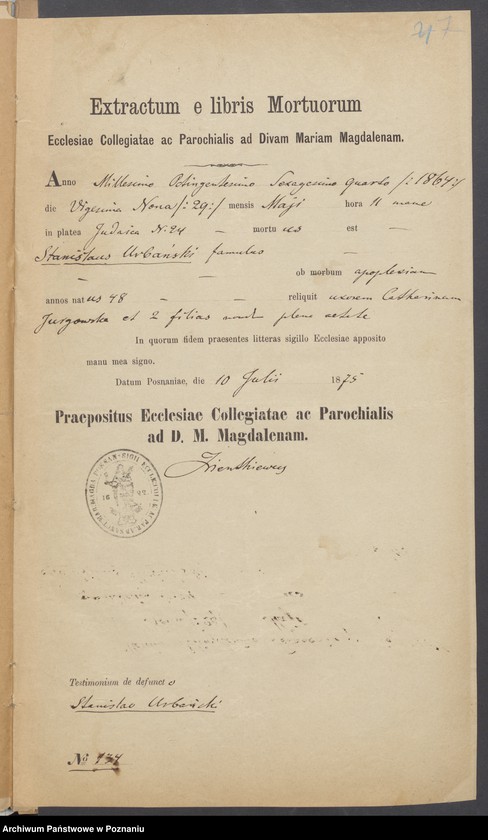 47
Extractum e libris Mortuorum
Ecclesiae Collegiatae ac Parochialis ad Divam Mariam Magdalenam.
Anno Millesimo Octingentesimo Sexagesimo quarto /: 1864 :/
die Vigesima Nona /: 29 :/ mensis Maji hora 11 mane
in platea Judaica N. 24 — mortuus est —
Stanislaus Urbański famulus —
— — ob morbum apoplexiam
annos natus 48 — — reliquit uxorem Catharinam
et 2 filias nondum plene aetate
In quorum fidem praesentes litteras sigillo Ecclesiae apposito
manu mea signo.
Datum Posnaniae, die 10 Julii 1875
Praepositus Ecclesiae Collegiatae ac Parochialis
ad D. M. Magdalenam.
16
Testimonium de defuncto
Stanislao Urbański
No 137
Archiwum Państwowe w Poznaniu